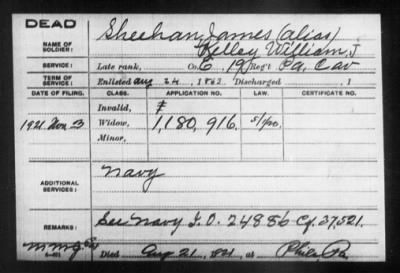 DEAD
NAME OF SOLDIER: Sheehan, James (alias)
Kelley William, J.
SERVICE: Late rank, Co. E, 19 Reg't Pa. Cav
TERM OF SERVICE: Enlisted Aug 24, 1862 Discharged , 1
DATE OF FILING. CLASS. APPLICATION NO. LAW. CERTIFICATE NO.
Invalid,
1921 Nov 3 Widow, 1,180,916,
Minor,
ADDITIONAL SERVICES: Navy
REMARKS: See Navy I.O. 24886 Cf. 37,521.
Died Aug 21, 1921, at Phila Pa